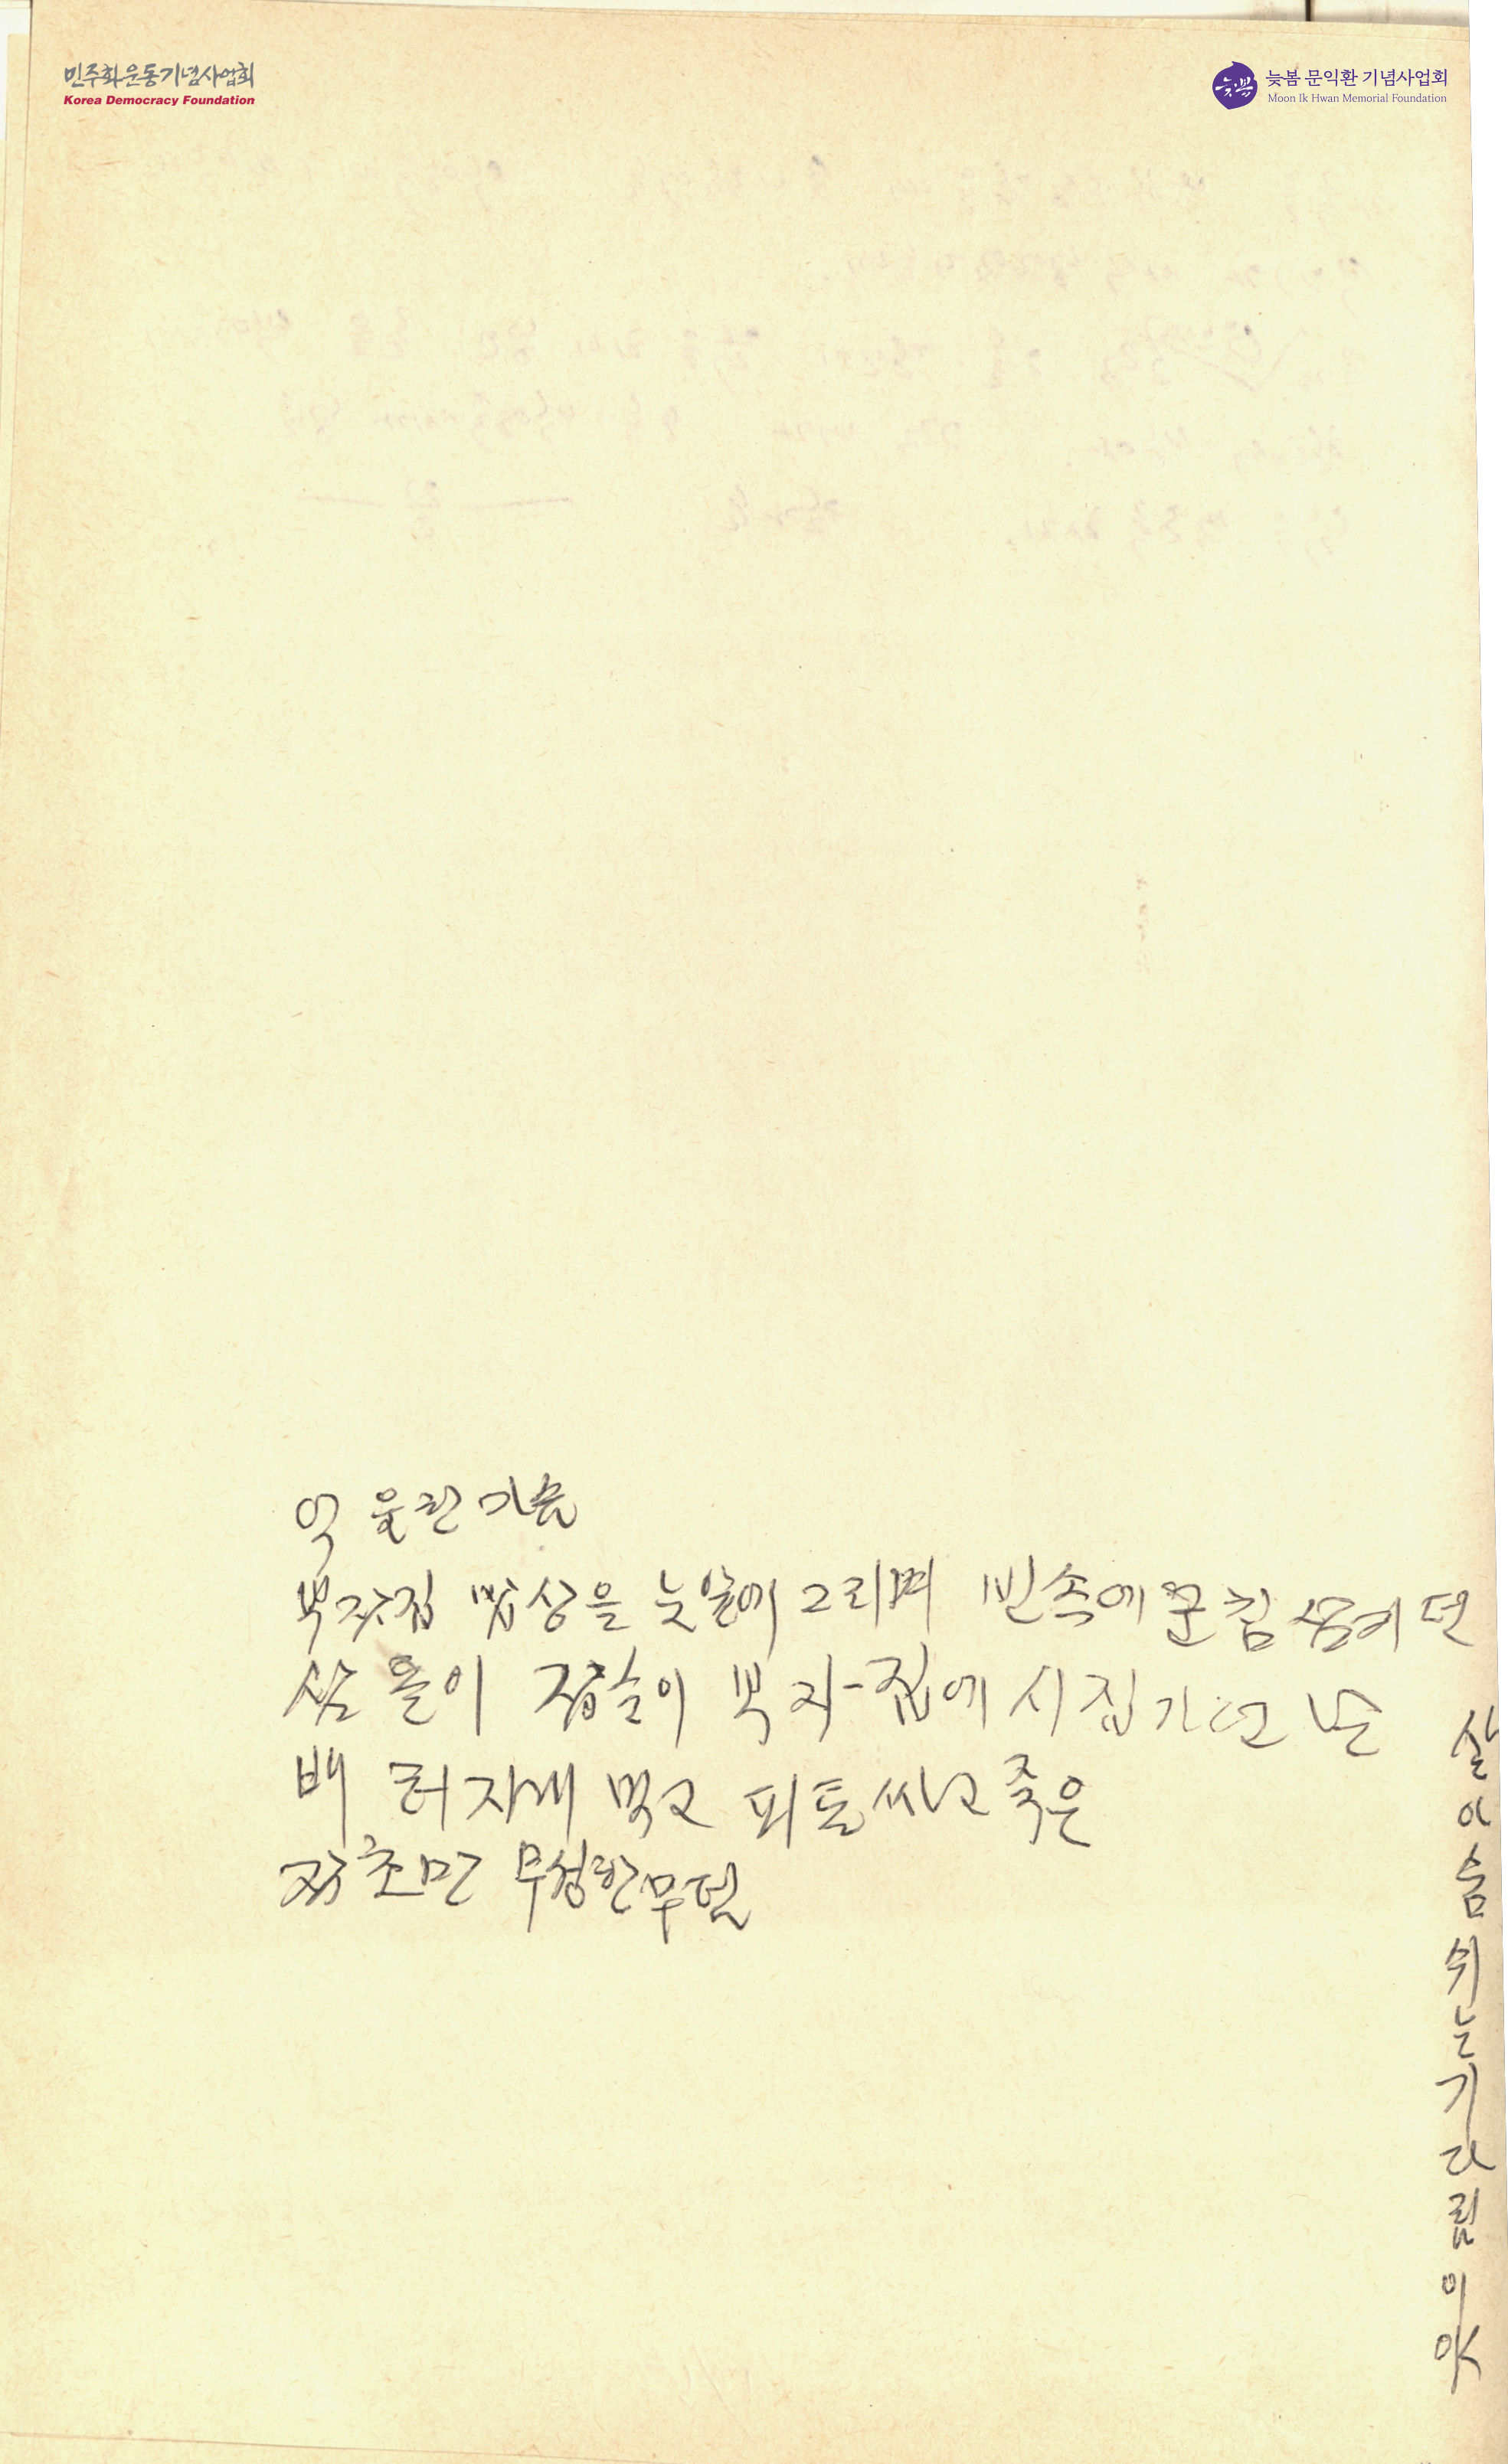 민주화운동기념사업회
Korea Democracy Foundation
늦봄 문익환 기념사업회
Moon Ik Hwan Memorial Foundation
억울한 가슴
부잣집 밥상을 눈앞에 그리며 빈속에 군침 삼키던
삼돌이 잡술이 부자집에 시집가던 날
배 터지게 먹고 피똥싸고 죽은
잡초만 무성한 무덤
살아 숨쉬는 기다림이야